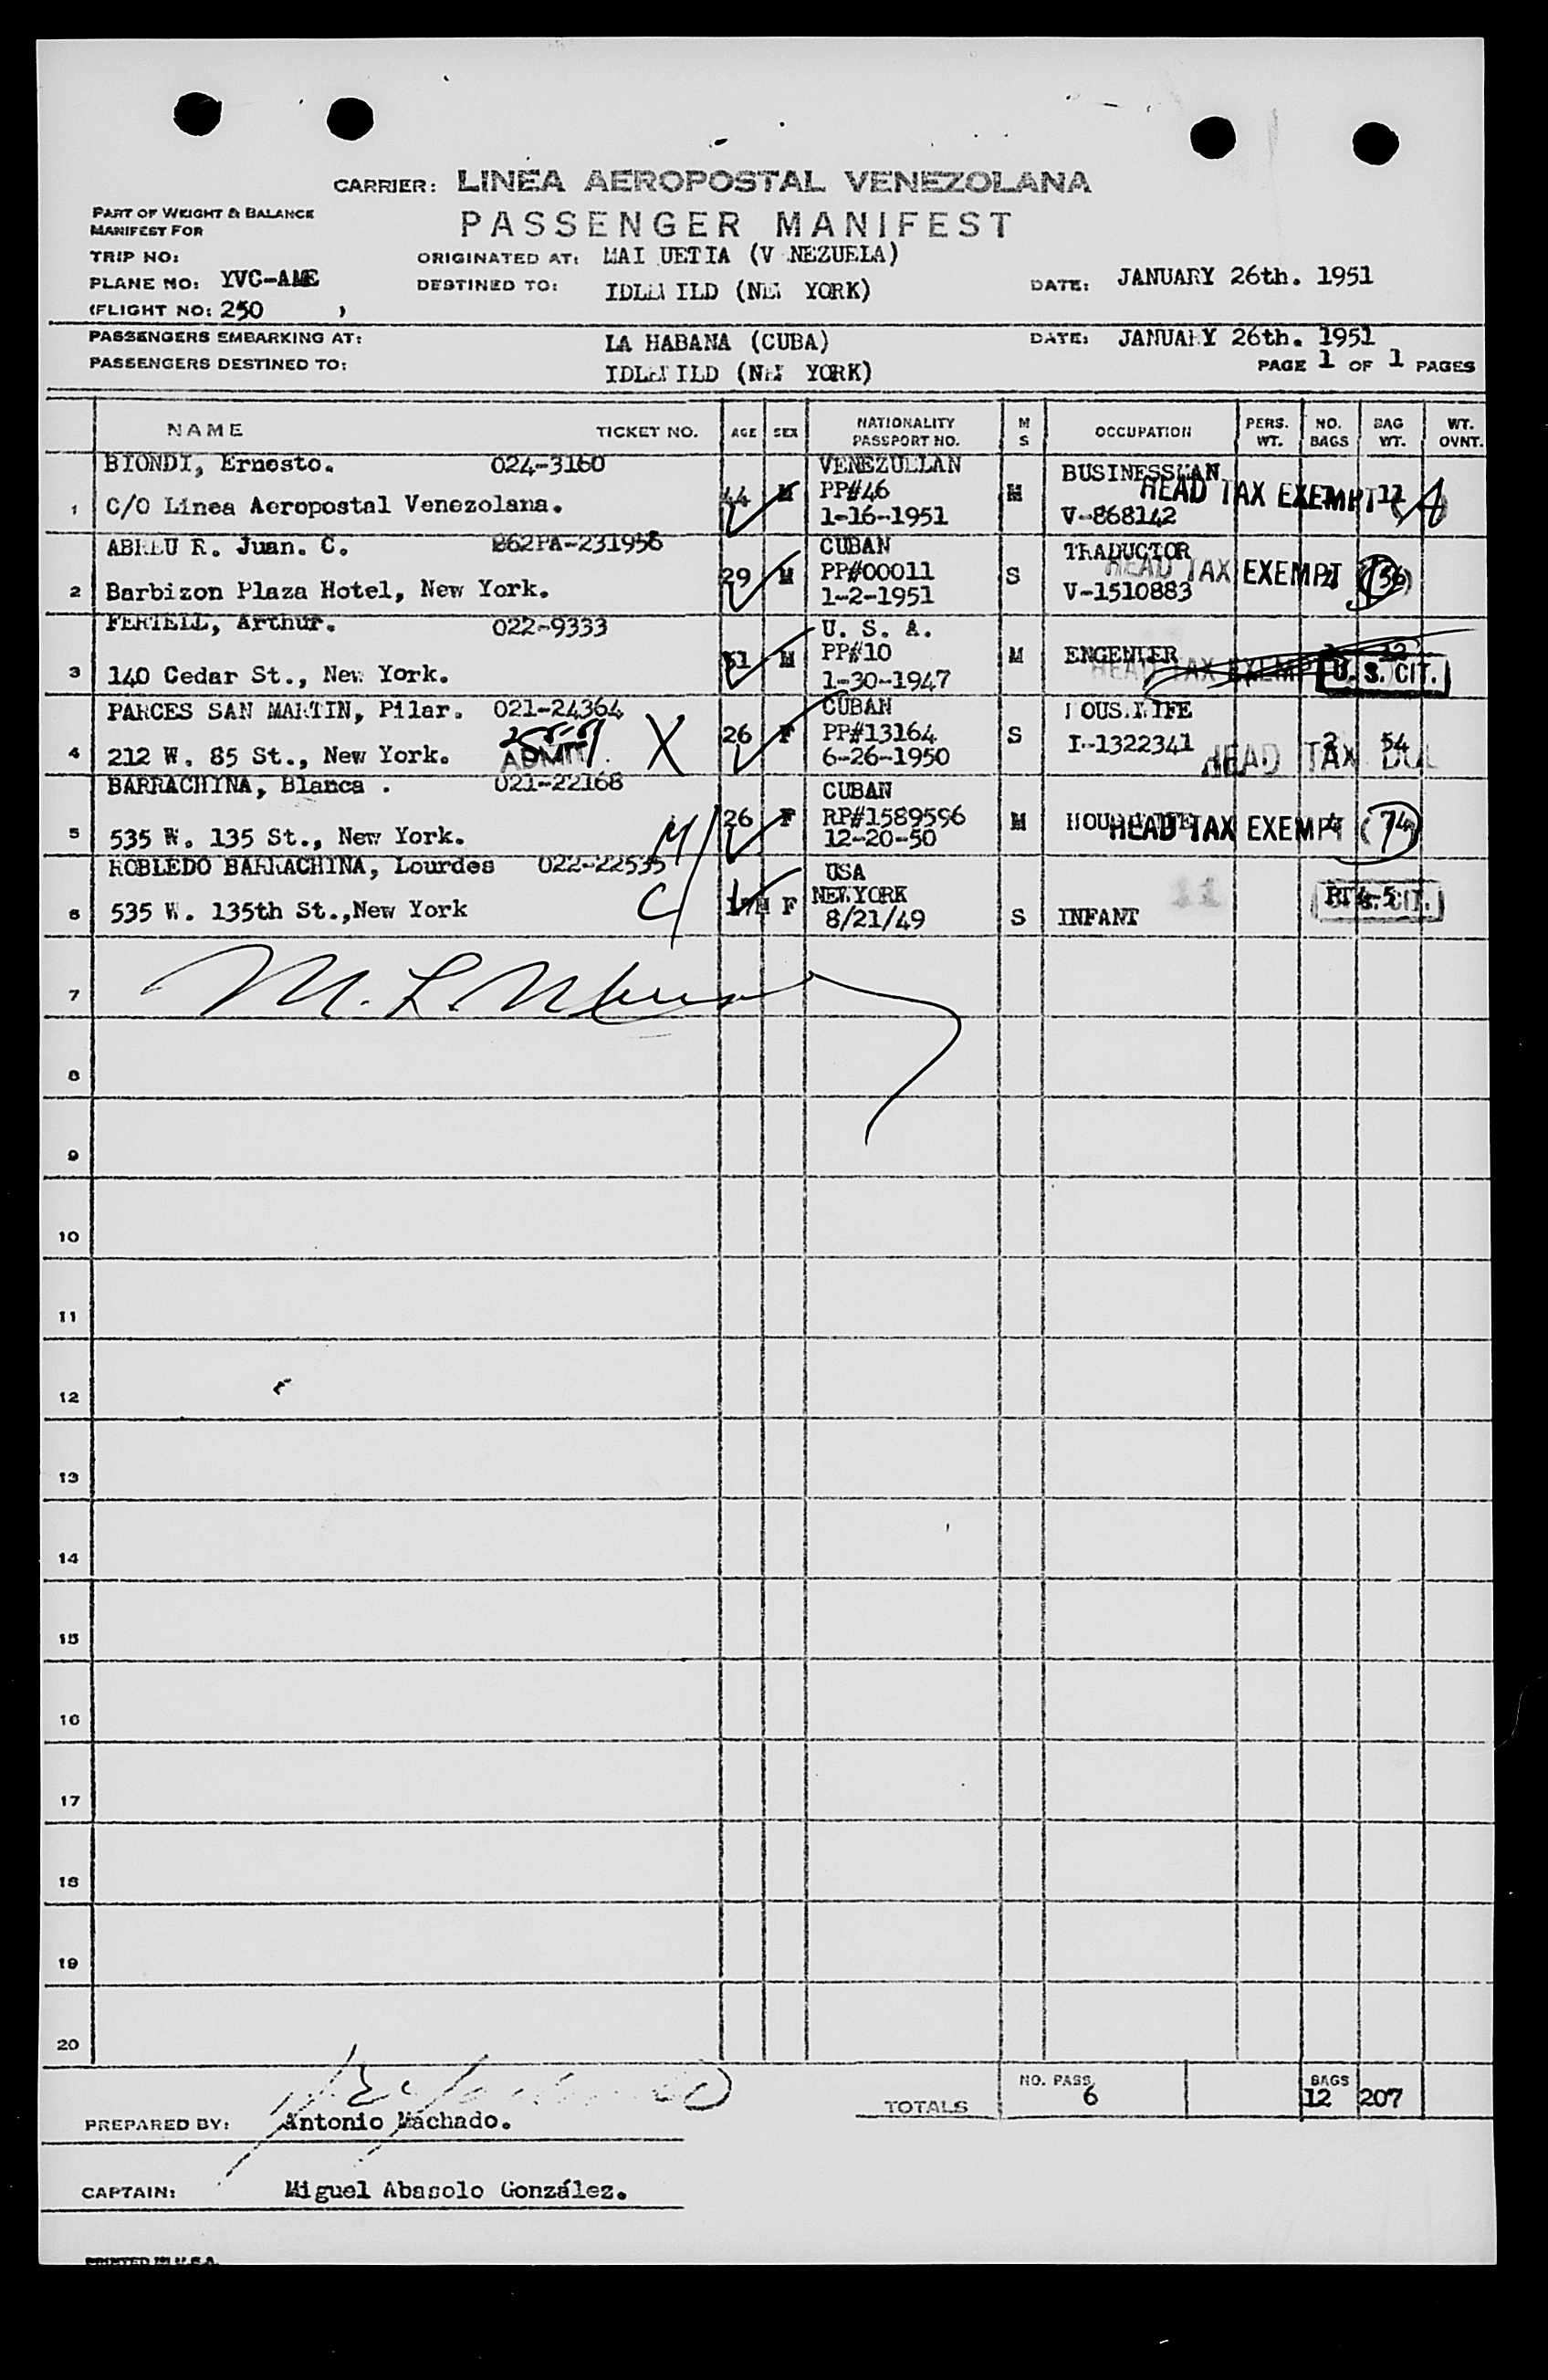 CARRIER: LINEA AEROPOSTAL VENEZOLANA
PART OF WEIGHT & BALANCE
MANIFEST FOR
PASSENGER MANIFEST
TRIP NO:
ORIGINATED AT: MAI UETIA (V NEZUELA)
PLANE NO: YVC-AME
DESTINED TO: IDLEWILD (NEW YORK)
DATE: JANUARY 26th. 1951
(FLIGHT NO: 250 )
PASSENGERS EMBARKING AT: LA HABANA (CUBA)
DATE: JANUARY 26th. 1951
PASSENGERS DESTINED TO: IDLEWILD (NEW YORK)
PAGE 1 OF 1 PAGES
NAME TICKET NO. AGE SEX NATIONALITY PASSPORT NO. M S OCCUPATION PERS. WT. NO. BAGS BAG WT. WT. OVNT.
BIONDI, Ernesto. 024-3160 VENEZUELAN
BUSINESSMAN
44 M PP#46 M HEAD TAX EXEMPT 11
1 C/O Linea Aeropostal Venezolana. 1-16-1951 V-868142
ABREU R. Juan. C. 862PA-231956 CUBAN
TRADUCTOR
29 M PP#00011 S HEAD TAX EXEMPT (36)
2 Barbizon Plaza Hotel, New York. 1-2-1951 V-1510883
FERTELL, Arthur. 022-9333 U. S. A.
51 M PP#10 M ENGENIER
HEAD TAX EXEMPT U. S. CIT.
3 140 Cedar St., New York. 1-30-1947
PARCES SAN MARTIN, Pilar. 021-24364 CUBAN
HOUSEWIFE
26 F PP#13164 S I-1322341 2 54
4 212 W. 85 St., New York. ADMIT. X 6-26-1950 HEAD TAX DUE
BARRACHINA, Blanca . 021-22168 CUBAN
26 F RP#1589596 M HOUSEWIFE HEAD TAX EXEMPT 4 (74)
5 535 W. 135 St., New York. M/ 12-20-50
ROBLEDO BARRACHINA, Lourdes 022-22535 USA
17M F NEW YORK 11 U. S. CIT.
6 535 W. 135th St.,New York C/ 8/21/49 S INFANT
7
8
9
10
11
12
13
14
15
16
17
18
19
20
TOTALS NO. PASS. 6 BAGS 12 207
PREPARED BY: Antonio Machado.
CAPTAIN: Miguel Abasolo González.
PRINTED IN U.S.A.